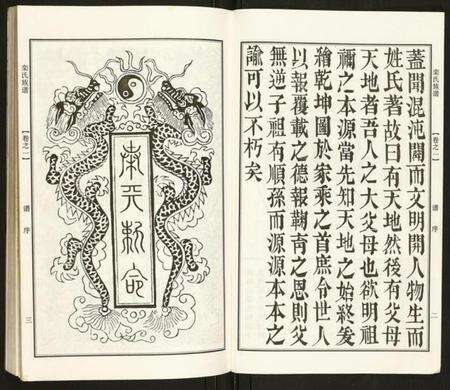 栾氏族谱 【卷之一】 谱序 二
蓋聞混沌闢而文明開人物生而
姓氏著故曰有天地然後有父母
天地者吾人之大父母也欲明祖
禰之本源當先知天地之始終爰
繪乾坤圖於家乘之首庶令世人
以報覆載之德報鞠育之恩則父
無逆子祖有順孫而源源本本之
諭可以不朽矣
奉天敕命
栾氏族谱 【卷之一】 谱序 三